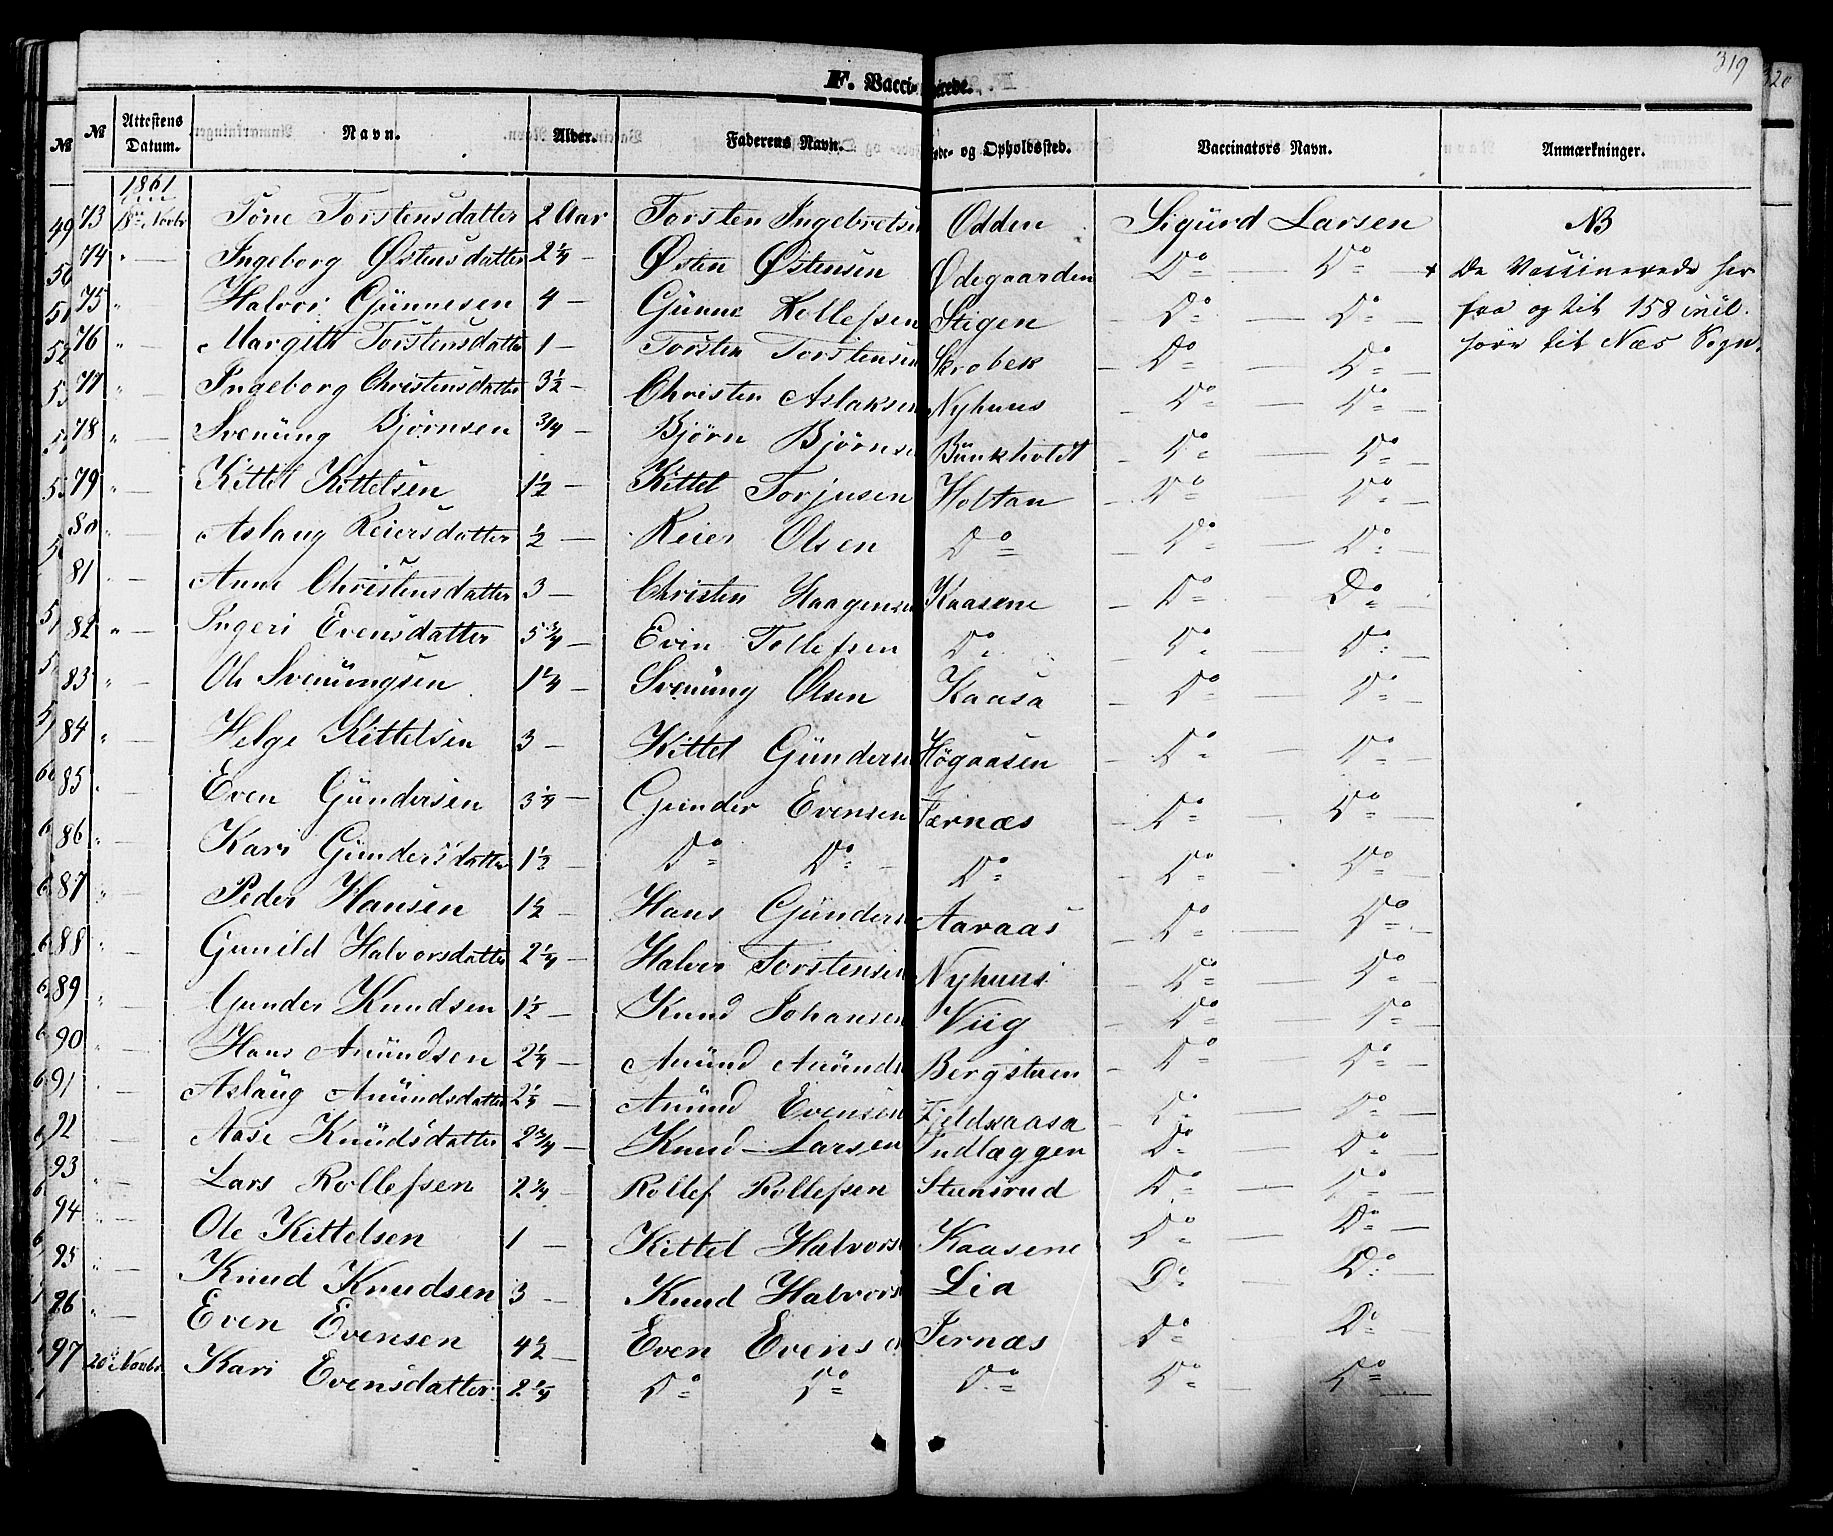 319
320
F. Vaccinerede.
№ № Attestens Datum. Navn. Alder. Faderens Navn. Føde- og Opholdssted. Vaccinators Navn. Anmærkninger.
1861
49 73 18de Novbr Tone Torstensdatter 2 Aar Torsten Ingebretsen Odden Sigurd Larsen NB
50 74 " — Ingeborg Østensdatter 2 1/4 — Østen Østensen Ødegaarden Do — Do De Vaccinerede her
51 75 " Halvor Gunnesen 4 — Gunne Rollefsen Stigen — Do — Do — fra og til 158 incl.
52 76 " Margith Torstensdatter 1 — Torsten Torstensen Skrobek — Do — Do — høre til Næs Sogn.
53 77 " — Ingeborg Christensdatter 3 1/2 — Christen Aslaksen Nyhuus — Do — Do —
78 " — Svenüng Bjørnsen 3/4 — Bjørn Bjørnsen Bünkholdt — Do — Do
55 79 " — Kittel Kittelsen 1 1/2 — Kittel Torjusen Holtan — Do — Do
80 " — Aslaug Reiersdatter 1/2 — Reier Olsen Do — Do — Do —
81 " — Anne Christensdatter 3 — Christen Haagensen Kaasene — Do — Do
82 " — Ingeri Evensdatter 5 3/4 — Even Tollefsen Do — Do — Do —
83 " — Ole Svenüngsen 1 1/4 — Svenüng Olsen Kaasa — Do — Do —
84 " — Helge Kittelsen 3 — Kittel Gündersen Høgaasen — Do — Do —
85 " — Even Gündersen 3 1/4 — Gunder Evensen Jernæs — Do — Do —
86 " — Kari Gundersdatter 1 1/2 — Do Do — Do — Do — Do —
87 " — Peder Hansen 1 1/2 — Hans Gündersen Aaraas — Do — Do —
88 " — Gunild Halvorsdatter 2 1/4 — Halvor Torstensen Nyhuus — Do — Do —
89 " — Gunder Knudsen 1 1/2 — Knud Johansen Viig — Do — Do —
90 " — Hans Amündsen 2 1/4 — Amünd Amündsen Bergstuen — Do — Do —
91 " — Aslaüg Amündsdatter 2 1/4 — Amünd Evensen Fjeldkaasa — Do — Do —
92 Aase Knüdsdatter 2 3/4 — Knud Larsen Indlæggen Do — Do —
93 " — Lars Rollefsen 2 1/4 — Rollef Rollefsen Steensrud Do — Do —
94 " — Ole Kittelsen 1 — Kittel Halvorsen Kaasene Do — Do —
95 " — Knud Knudsen 3 — Knud Halvorsen Lia Do — Do —
96 " — Even Evensen 4 1/2 — Even Evensen Jernæs Do — Do —
97 20de Novbr. Kari Evensdatter 2 1/4 Do Do Do Do — Do —